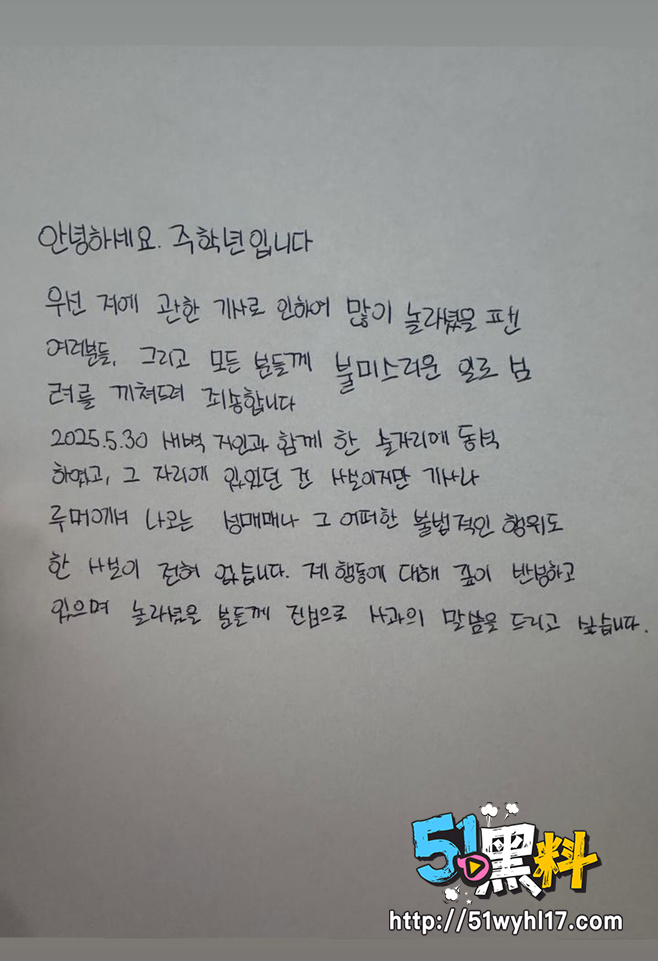 안녕하세요. 주학년입니다
우선 저에 관한 기사로 인하여 많이 놀라셨을 팬
여러분들, 그리고 모든 분들께 불미스러운 일로 심
려를 끼쳐드려 죄송합니다
2025.5.30 새벽 지인과 함께 한 술자리에 동석
하였고, 그 자리에 있었던 건 사실이지만 기사나
루머에서 나오는 성매매나 그 어떠한 불법적인 행위도
한 사실이 전혀 없습니다. 제 행동에 대해 깊이 반성하고
있으며 놀라셨을 분들께 진심으로 사과의 말씀을 드리고 싶습니다.
51黑料
http://51wyhl17.com